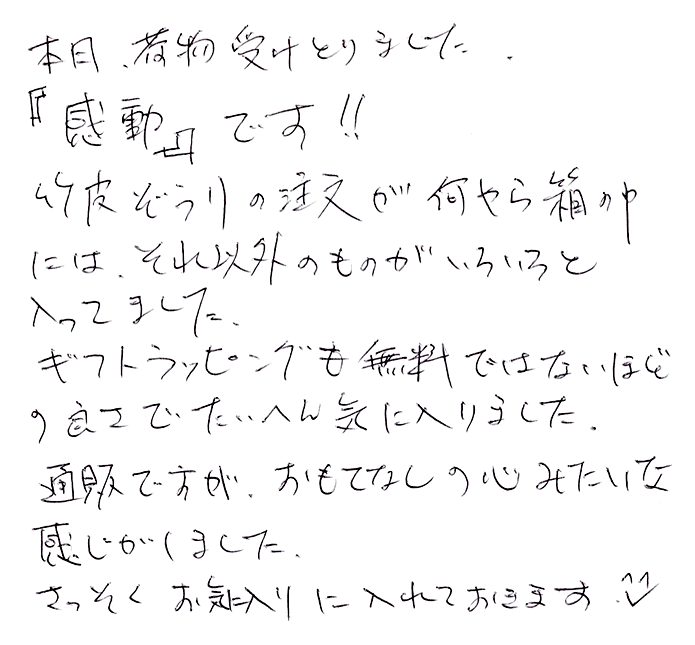 本日、荷物受けとりました.
『感動』です!!
竹皮ぞうりの注文が何やら箱の中
には、それ以外のものがいろいろと
入ってました.
ギフトラッピングも無料ではないほど
の良さでたいへん気に入りました.
通販ですが、おもてなしの心みたいな
感じがしました.
さっそくお気に入りに入れておきます.